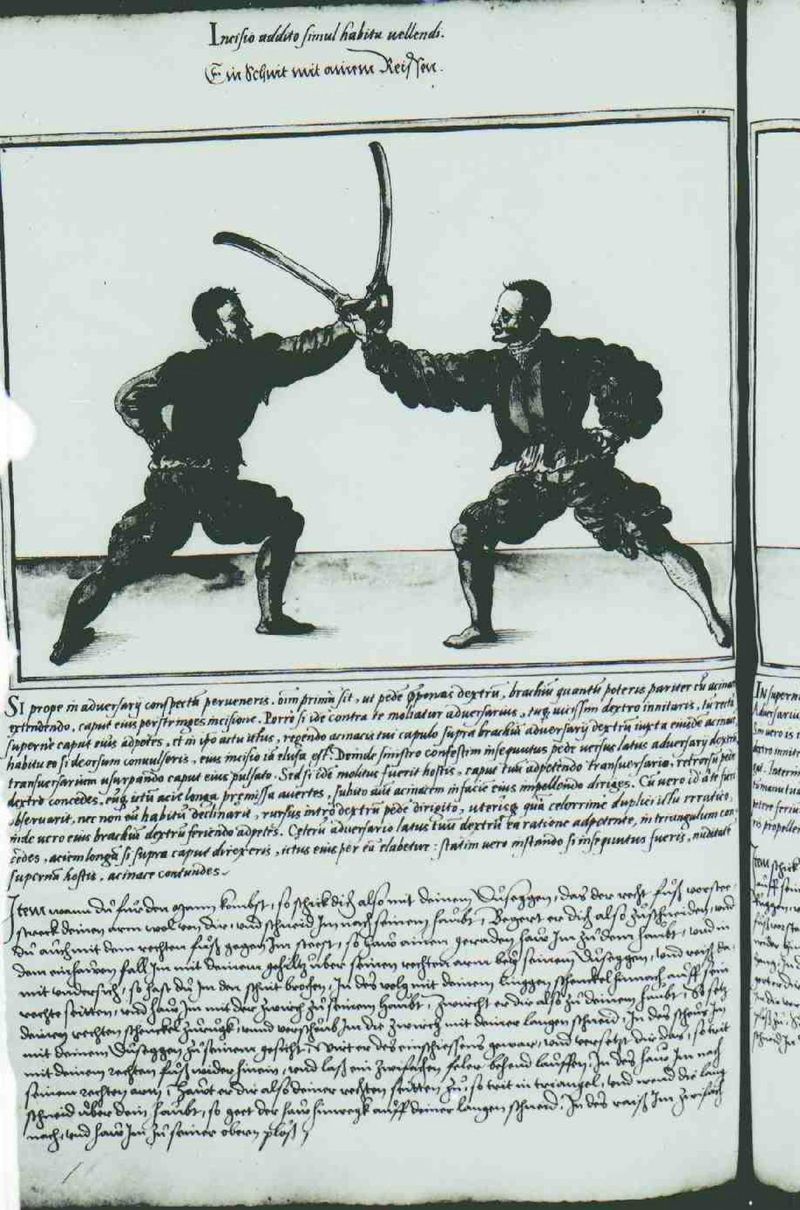 Incisio addito simul habitu vellendi.
Ein Schnit mit ainem Reissen.
SI prope in adversarij conspectũ perveneris, cum primũ sit, ut pede dextrũ, brachiũ quantũ poteris pariter cũ acinace
extendendo, caput eius perstringes incisione. Porro si idē contra te moliatur adversarius, tuq. vicissim dextro innitaris, tu recta
superne caput eius adpetes, et in ipo actu ictus, regendo acinacis tui capulo supra brachiũ adversarij dextrũ iuxta eiusdē acinacē
habitu eo si deorsum convulseris, eius incisio iā elusa est. Deinde sinistro confestim insequutus pede versus latus adversarij dextrũ
transversariam usurpando caput eius pulsato. Sed si idē molitus fuerit hostis, caput tuũ adpetendo transversario, retrorsũ pede
dextro concedes, eiusq. ictũ acie longa premissa avertes, subito aũt acinacem in faciē eius impellendo diriges. Cũ vero id a te fieri
observarit, nec non eũ habitũ declinarit, rursus intro dextrũ pedē dirigito, uterisq. quā celerrime duplici ictu irrito,
inde vero eius brachiũ dextrũ feriendo adpetes. Ceterũ adversario latus tuum dextrũ ea ratione adpetente, in triangulum con-
cedes, aciem longā si supra caput direxeris, ictus eius per eā elabetur: statim vero instando si insequutus fueris, nuditatē
supernā hostis, acinace contundes.
Item wann du für den mann kombst, so schick dich also mit deinem Duseggen, das der recht fuß vorstee,
streck deinen arm wol von dir, und schneid Im nach seinem haubt, Begert er dich also zuschneiden, und
du auch mit dem rechten fuß gegen Im steest, so haw ainen geraden haw Im zu dem haubt, und in
dem einhawen fall Im mit deinem gehiltz über seinen rechten arm bey seinem Duseggen, und reiß da-
mit undersich, so hast du Im den schnit brochen, In des volg mit deinem linggen schenckel hinnach auff sein
rechte seitten, und haw Im mit der zwirch zu seinem haubt, zwircht er dir also zu deinem haubt, so setz
deinen rechten schenckel zuruck, unnd verschaub Im die zwirch mit deiner langen schneid, In des scheus Im
mit deinem Duseggen zu seinem gesicht, Wirt er des einschiessens gewar, und versetzt dir das, so trit
mit deinem rechten fuß wider hinein, und laß ein zwifachen feler behend lauffen, In des haw Im nach
seinem rechten arm, Hawt er dir also deiner rechten seitten zu, so trit in triangel, und wend die lang
schneid über dein haubt, so geet der haw hinwegk auff deiner langen schneid, In des raiß Im zwifach
nach, und haw Im zu seiner obern plöß